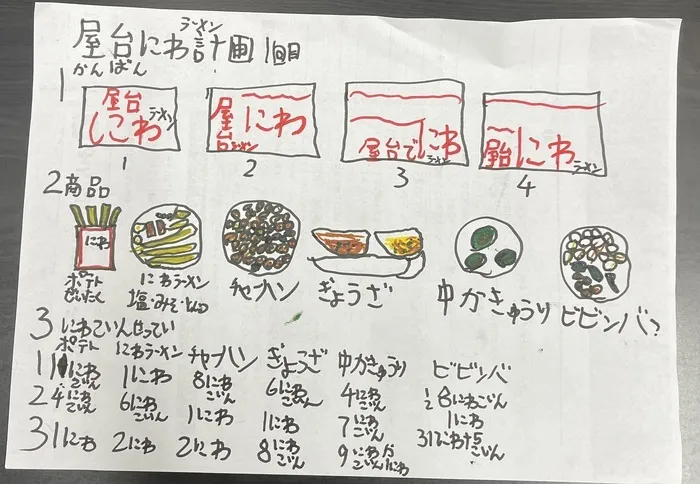 屋台にわラーメン計画 1回目
1 かんばん
屋台 にわ ラーメン
屋台ラーメン にわ
屋台で にわ ラーメン
屋台 にわ ラーメン
1 2 3 4
2 商品
にわ
ポテト ぜいたく
にわラーメン 塩・みそ・とんこつ
チャーハン
ぎょうざ
中かきゅうり
ビビンバ?
3 にわこいんせってい
ポテト にわラーメン チャーハン ぎょうざ 中かきゅうり ビビンバ
1 1にわこいん 1にわ 8にわこいん 6にわこいん 4にわこいん 8にわこいん
2 4にわこいん 6にわこいん 1にわ 1にわ 7にわこいん 1にわ
3 1にわ 2にわ 2にわ 8にわこいん 9にわこいん